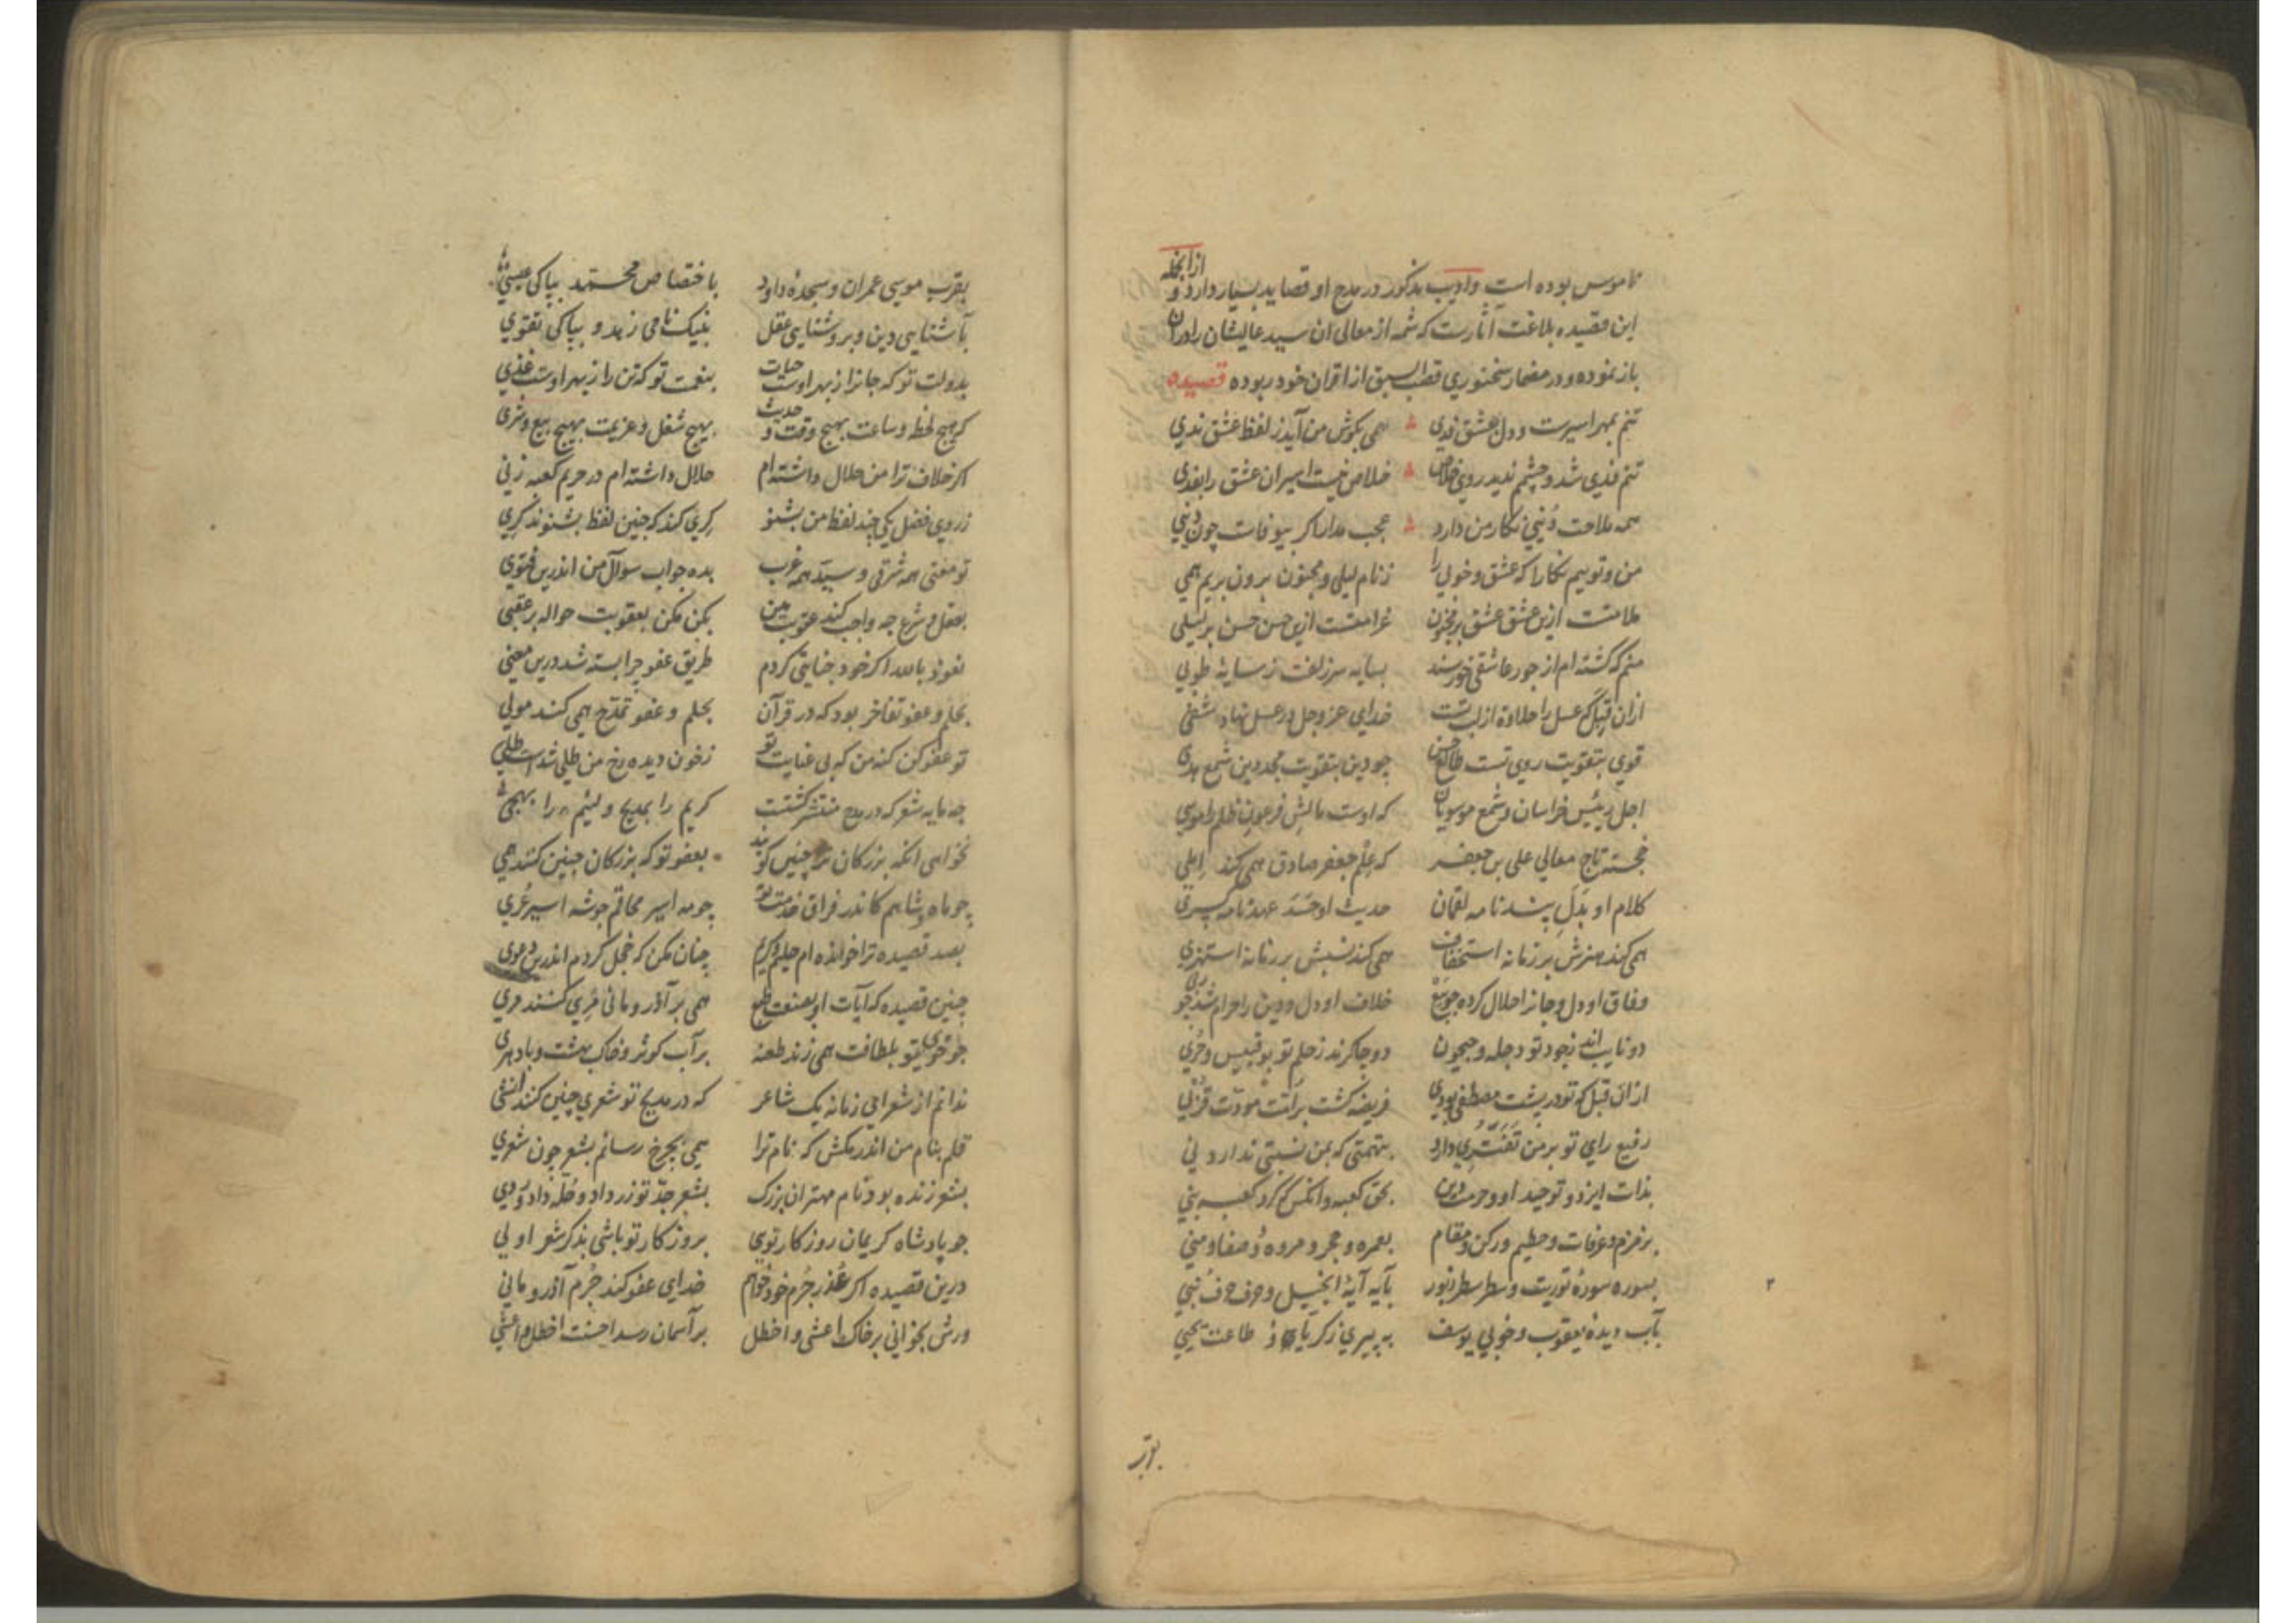 ناموس بوده است وادیب مذکور در مدح او قصاید بسیار دارد و ازانجمله
این قصیده بلاغت آثارست که شمهٔ از معالی ان سید عالیشان را دران
باز نموده و در مضمار سخنوری قصب السبق از اقران خود ربوده قصیده
تنم بمهر اسیرست و دل بعشق فدی همی بکوش من آید ز لفظ عشق ندی
تنم فدی شد و چشمم ندید روی خلاص خلاص نیست اسیران عشق را بفدی
همه ملاحت دُنیی نکار من دارد عجب مدار اکر بیوفاست چون دُنیی
من و توییم نکارا که عشق و خوبی را ز نام لیلی و مجنون برون بریم همی
ملامتست ازین عشق عشق بر مجنون غرامتست ازین حسن حسن بر لیلی
منم که کشته ام از جور عاشقی خورسند بسایه سر زلفت ز سایهٔ طوبی
ازان قِبَل که عسل را حلاوة از لب تست خدای عز وجل در عسل نهاد شفی
قوی بتقویت روی تست طالع حسن چو دین بتقویت مجد دین شمع هدی
اجل رئیس خراسان و شمع موسویان که اوست مالش فرعون ظلم را موسی
خجسته تاج معالی علی بن جعفر که علم جعفر صادق همی کند املی
کلام او بَدَل پند نامه لقمان حدیث او حَسَد عهد نامه کسری
همی کند هنرش بر زمانه استخفاف همی کند نسبش بر زمانه استهزی
وفاق او دل و جانرا حلال کرده چو بیع خلاف او دل و دین را حرام شد چو ربی
دو نایب اند ز جود تو دجله و جیحون دو چاکرند ز حلم تو بو قبیس و حری
ازان قبل که تو در پشت مصطفی بودی فریضه کشت بر امّت مودّت قُربی
رفیع رای تو بر من تَغَیُّری دارد بتهمتی که بمن نسبتی ندارد نی
بذات ایزد و توحید او و حرمت دین بحق کعبه و انکس که کرد کعبه بنی
بزمزم و عرفات و حطیم و رکن و مقام بعمره و حجر و مروه وُ صفا و منی
بسوره سورهٔ توریت و سطر سطر زبور بآیه آیهٔ انجیل و حرف حرف نبی
بآب دیدهٔ یعقوب و خوبی یوسف به پیری زکریا و طاعت یحیی
بوتر
بقرب موسی عمران و سجدهٔ داود باختصاص محمد بپاکی عیسی
بآشنایی دین و بروشنایی عقل بنیک نامی زهد و بپاکی تقوی
بدولت تو که جانرا ز بهر اوست حیات بنعمت تو که تن را ز بهر اوست غذی
که هیچ لحظ و ساعت بهیچ وقت و حدیث بهیچ شغل و عزیمت بهیچ بیع و شری
اکر خلاف ترا من حلال داشته ام حلال داشته ام در حریم کعبه زنی
ز روی فضل یکی چند لفظ من بشنو کری کند که چنین لفظ بشنوند کری
تو مفتی همه شرقی و سیّد همه غرب بده جواب سوال من اندرین فتوی
بعقل و شرع چه واجب کند عقوبت من بکن مکن بعقوبت حواله بر عقبی
نعوذ بالله اکر خود جنایتی کردم طریق عفو چرا بسته شد درین معنی
بحلم و عفو تفاخر بود که در قرآن بحلم و عفو تمدّح همی کند مولی
تو عفو کن کنه من که بی عنایت تو ز خون دیده رخ من طلی شد است طلی
چه مایه شعر که در مدح منتشر کشتست کریم را بمدیح و لئیم را بهجی
نخواهی انکه بزرکان ترا چنین کویند بعفو تو که بزرکان چنین کنند همی
چو ماه و شاهم کاندر فراق خدمت تو چو مه اسیر محاقم چو شه اسیر عُری
بصد قصیده ترا خوانده ام حلیم و کریم چنان مکن که خجل کردم اندرین دعوی
چنین قصیده که آیات او بصنعت طبع همی بر آذر و مانی مُری کنند مری
چو خوی تو بلطافت همی زند طعنه بر آب کوثر و خاک بهشت و باد هری
ندانم از شعرای زمانه یک شاعر که در مدیح تو شعری چنین کند انشی
قلم بنام من اندر مکش که نام ترا همی بچرخ رسانم بشعر چون شعری
بشعر زنده بود نام مهتران بزرک بشعر جدّ تو زر داد و حُلّه داد و رَدی
چو پادشاه کریمان روزکار توی بروزکار تو باشی بذکر شعر اولی
درین قصیده اکر عُذر جُرم خود خواهم خدای عفو کند جُرم آذر و مانی
ورش بخوانی بر خاک اعشی و اخطل بر آسمان رسد احسنت اخطل و اعشی